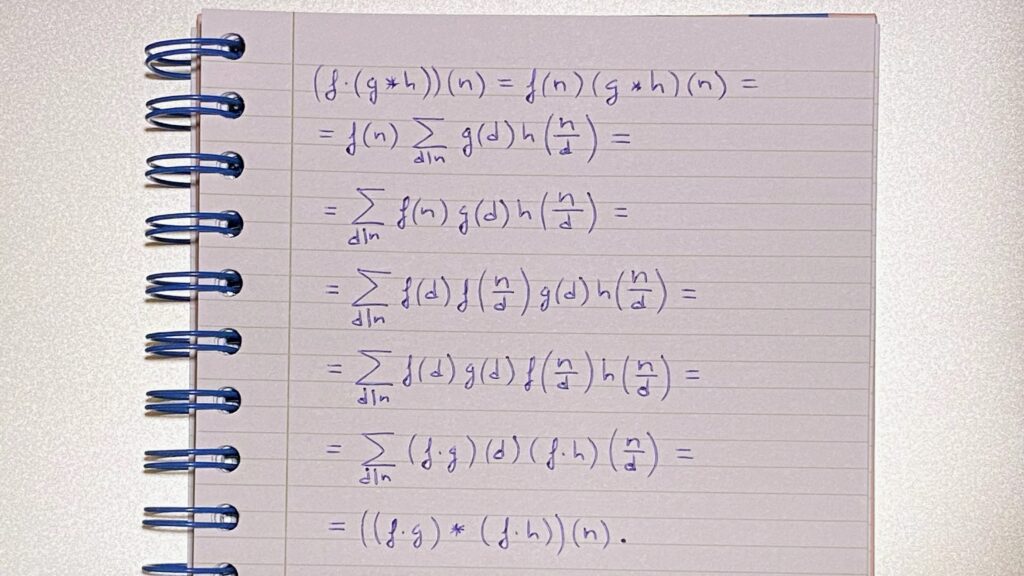 (f·(g*h))(n) = f(n)(g*h)(n) =
= f(n) ∑_{d|n} g(d) h(n/d) =
= ∑_{d|n} f(n) g(d) h(n/d) =
= ∑_{d|n} f(d) f(n/d) g(d) h(n/d) =
= ∑_{d|n} f(d) g(d) f(n/d) h(n/d) =
= ∑_{d|n} (f·g)(d) (f·h)(n/d) =
= ((f·g) * (f·h))(n).